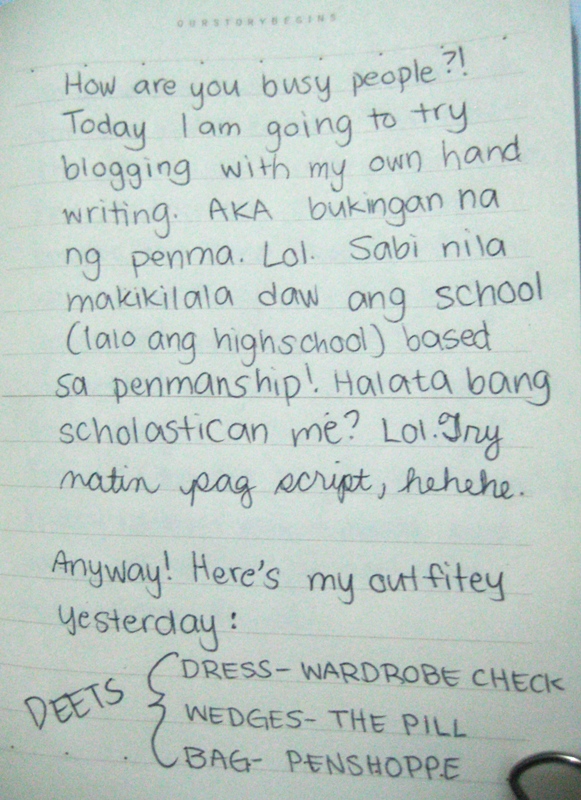 OURSTORYBEGINS
How are you busy people?!
Today I am going to try
blogging with my own hand
writing. AKA bukingan na
ng penma. Lol. Sabi nila
makikilala daw ang school
(lalo ang highschool) based
sa penmanship! Halata bang
scholastican me? Lol. Try
natin pag script, hehehe.
Anyway! Here's my outfitey
yesterday:
DEETS { DRESS- WARDROBE CHECK
WEDGES- THE PILL
BAG- PENSHOPPE